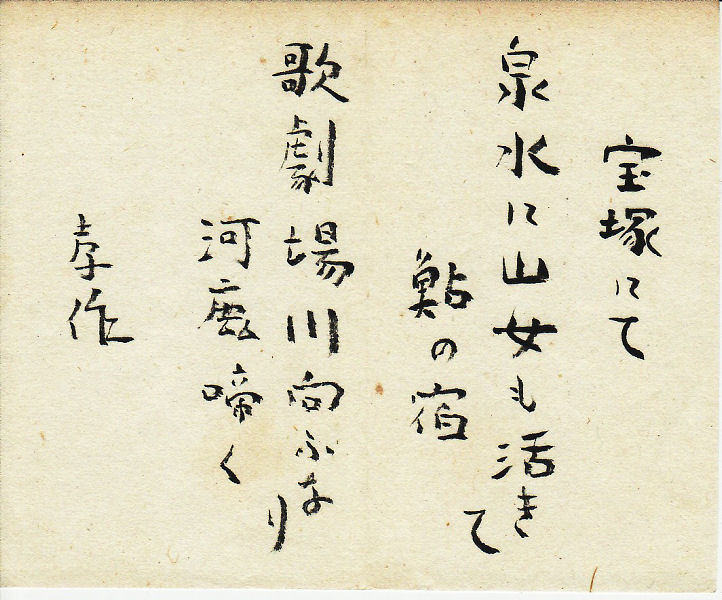 宝塚にて
泉水に山女も活きて
鮎の宿
歌劇場川向ふなり
河鹿啼く
孝作